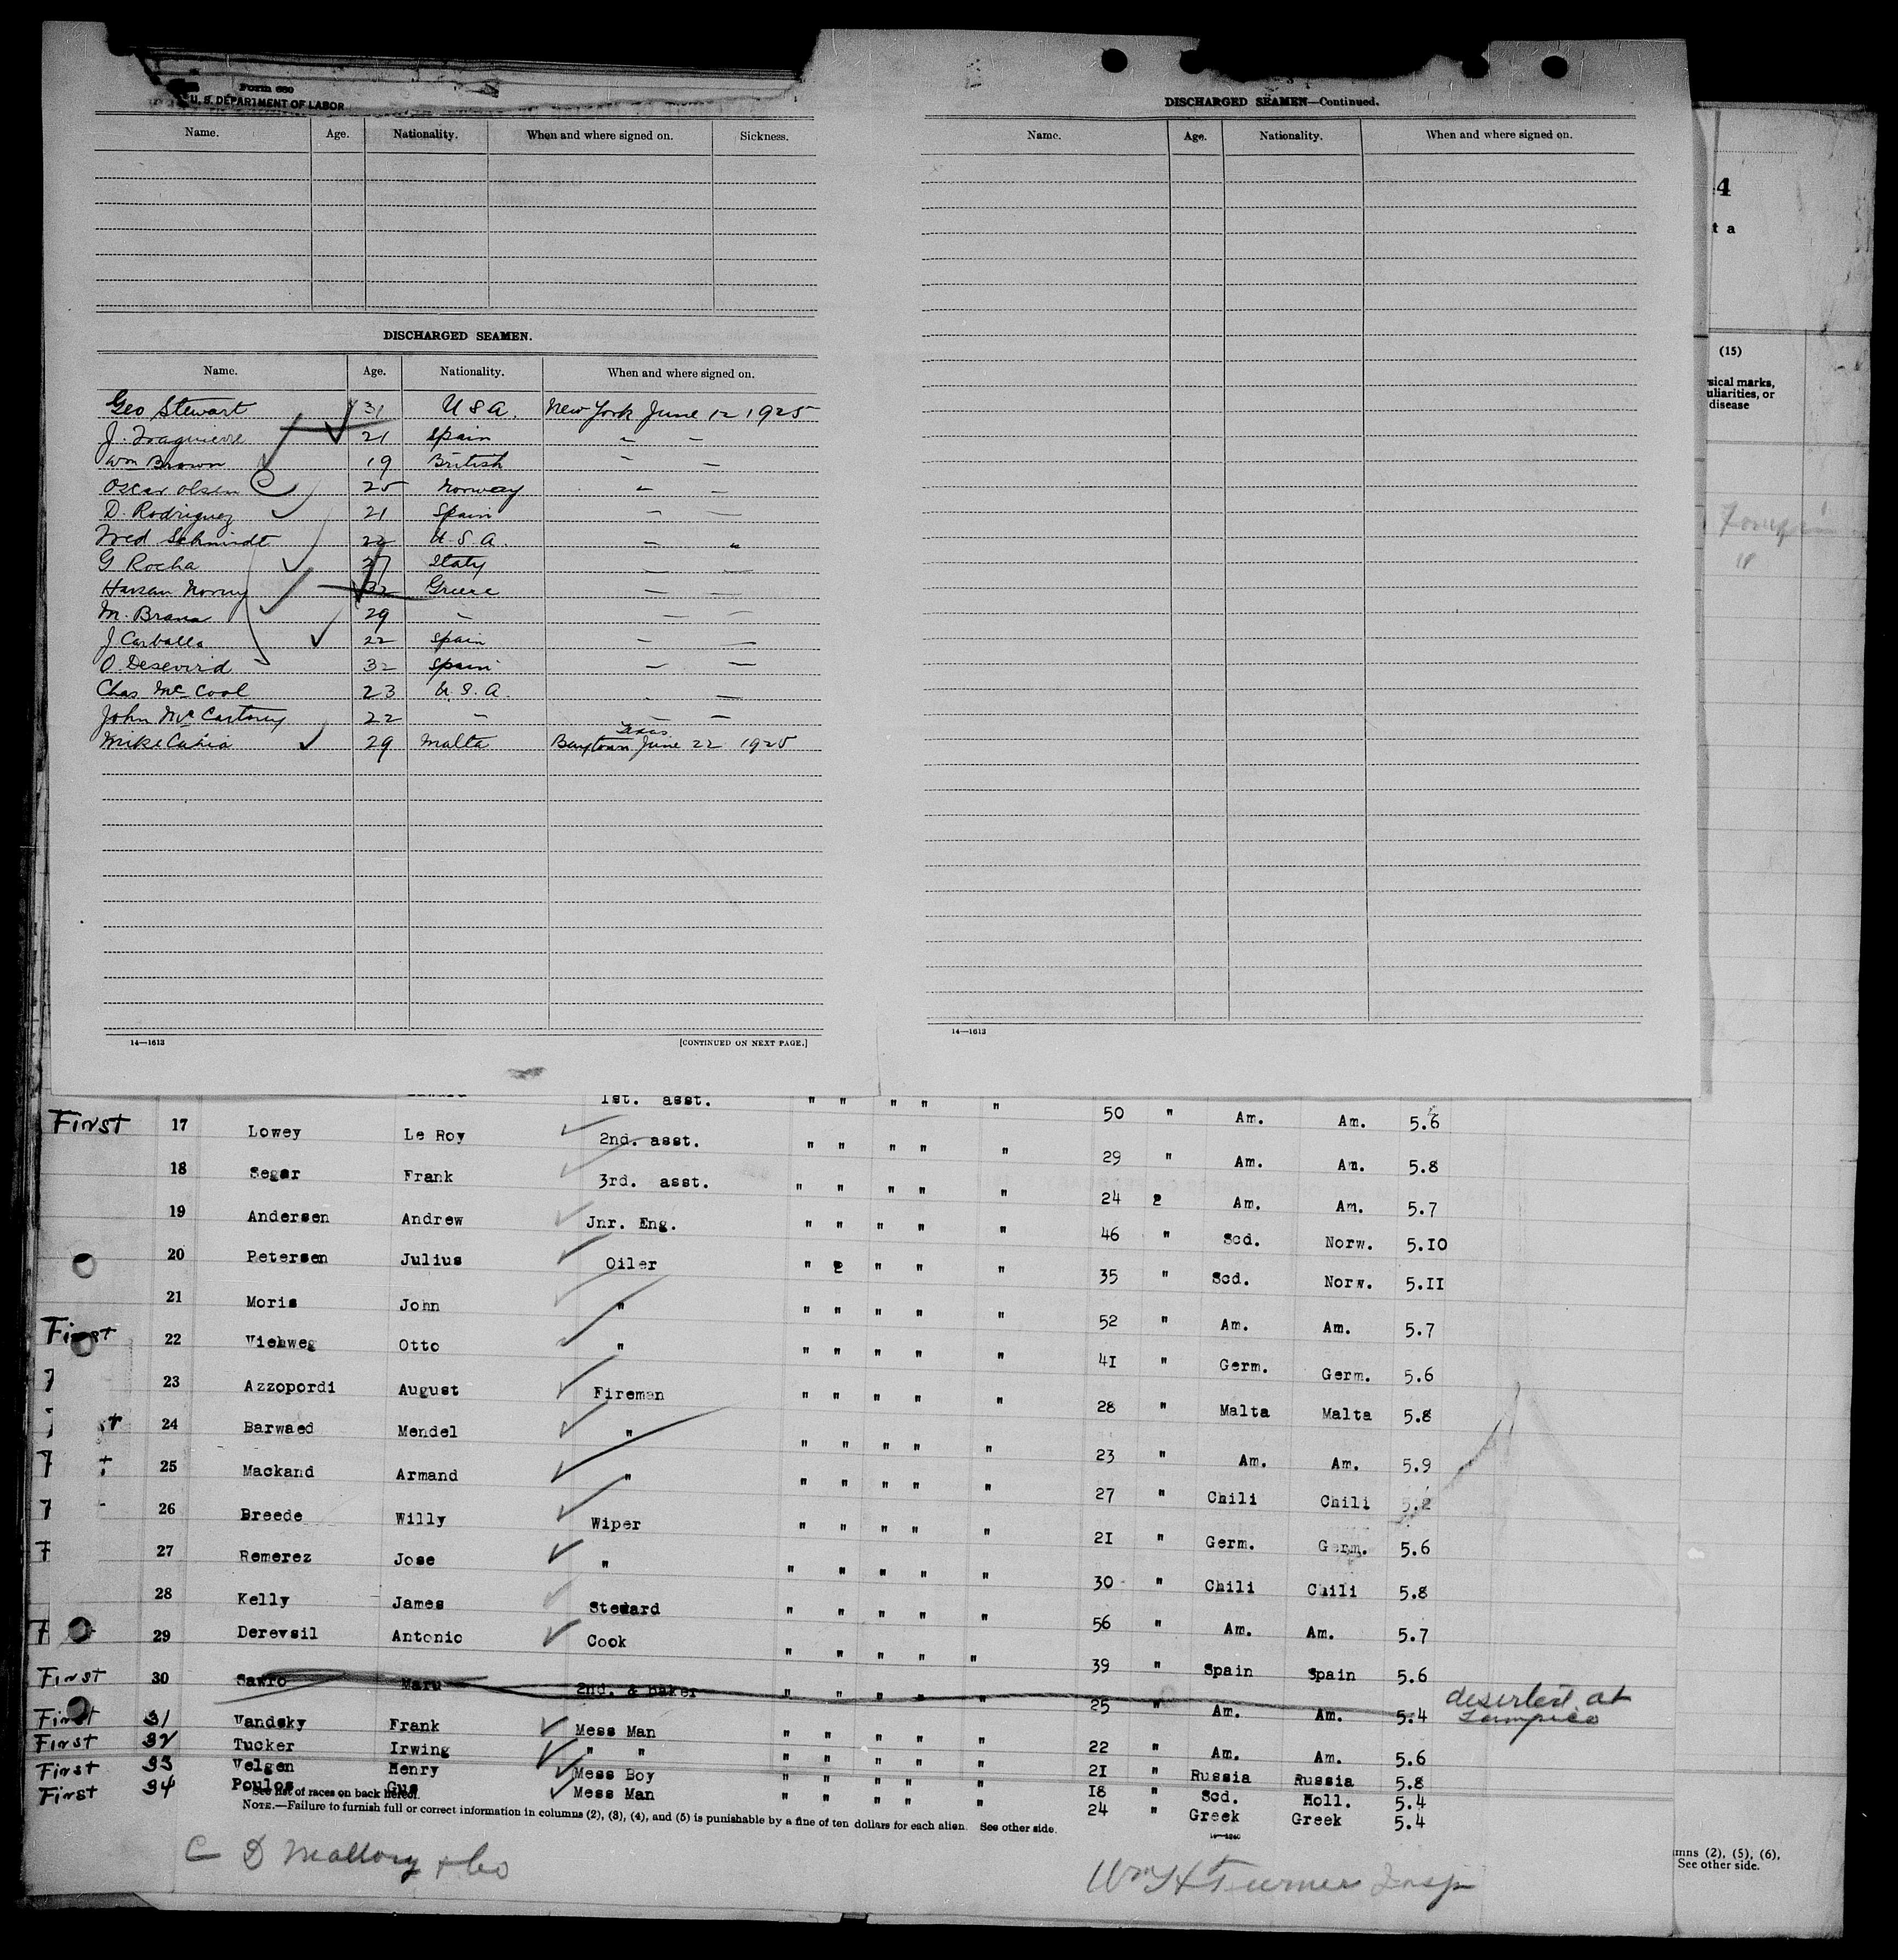 Form 680
U. S. DEPARTMENT OF LABOR
Name. Age. Nationality. When and where signed on. Sickness.
DISCHARGED SEAMEN.
Name. Age. Nationality. When and where signed on.
Geo Stewart 31 U S A. New York June 12 1925
J. 21 Spain " "
Wm Brown 19 British " "
Oscar Olsen 25 Norway " "
D. Rodriguez 21 Spain " "
Fred Schmidt 22 U.S.A. " "
G Rocha 27 Italy " "
Hassan 32 Greece " "
M. Brana 29 " " "
J Carballa 22 Spain " "
O. Desevird 32 Spain " "
Chas Mc Cool 23 U.S.A. " "
John Mc Cartney 22 " " "
Texas
Mike Cahia 29 Malta Baytown June 22 1925
14—1613 [CONTINUED ON NEXT PAGE.]
DISCHARGED SEAMEN—Continued.
Name. Age. Nationality. When and where signed on.
14—1613
4
t a
(15)
sical marks,
uliarities, or
disease
1st. asst. " " " " " 50 " Am. Am. 5.6
First 17 Lowey Le Roy 2nd. asst. " " " " " 29 " Am. Am. 5.8
18 Segar Frank 3rd. asst. " " " " " 24 2 Am. Am. 5.7
19 Andersen Andrew Jnr. Eng. " " " " " 46 " Scd. Norw. 5.10
20 Petersen Julius Oiler " 2 " " " 35 " Scd. Norw. 5.11
21 Moris John " " " " " " 52 " Am. Am. 5.7
First 22 Viehweg Otto " " " " " " 41 " Germ. Germ. 5.6
23 Azzopordi August Fireman " " " " " 28 " Malta Malta 5.8
24 Barwaed Mendel " " " " " " 23 " Am. Am. 5.9
25 Mackand Armand " " " " " " 27 " Chili Chili 5.2
26 Breede Willy Wiper " " " " " 21 " Germ. Germ. 5.6
27 Remerez Jose " " " " " " 30 " Chili Chili 5.8
28 Kelly James Steward " " " " " 56 " Am. Am. 5.7
29 Derevsil Antonio Cook " " " " " 39 " Spain Spain 5.6
First 30 Sawro Maru 2nd. & baker " " " " " 25 " Am. Am. 5.4 deserted at Tampico
First 31 Vandsky Frank Mess Man " " " " " 22 " Am. Am. 5.6
First 32 Tucker Irwing " " " " " " " 21 " Russia Russia 5.8
First 33 Velgen Henry Mess Boy " " " " " 18 " Scd. Holl. 5.4
First 34 Poulos Gus Mess Man " " " " " 24 " Greek Greek 5.4
See list of races on back hereof.
NOTE.—Failure to furnish full or correct information in columns (2), (3), (4), and (5) is punishable by a fine of ten dollars for each alien. See other side.
C D Mallory & Co
Wm H Turner Insp
mns (2), (5), (6),
See other side.